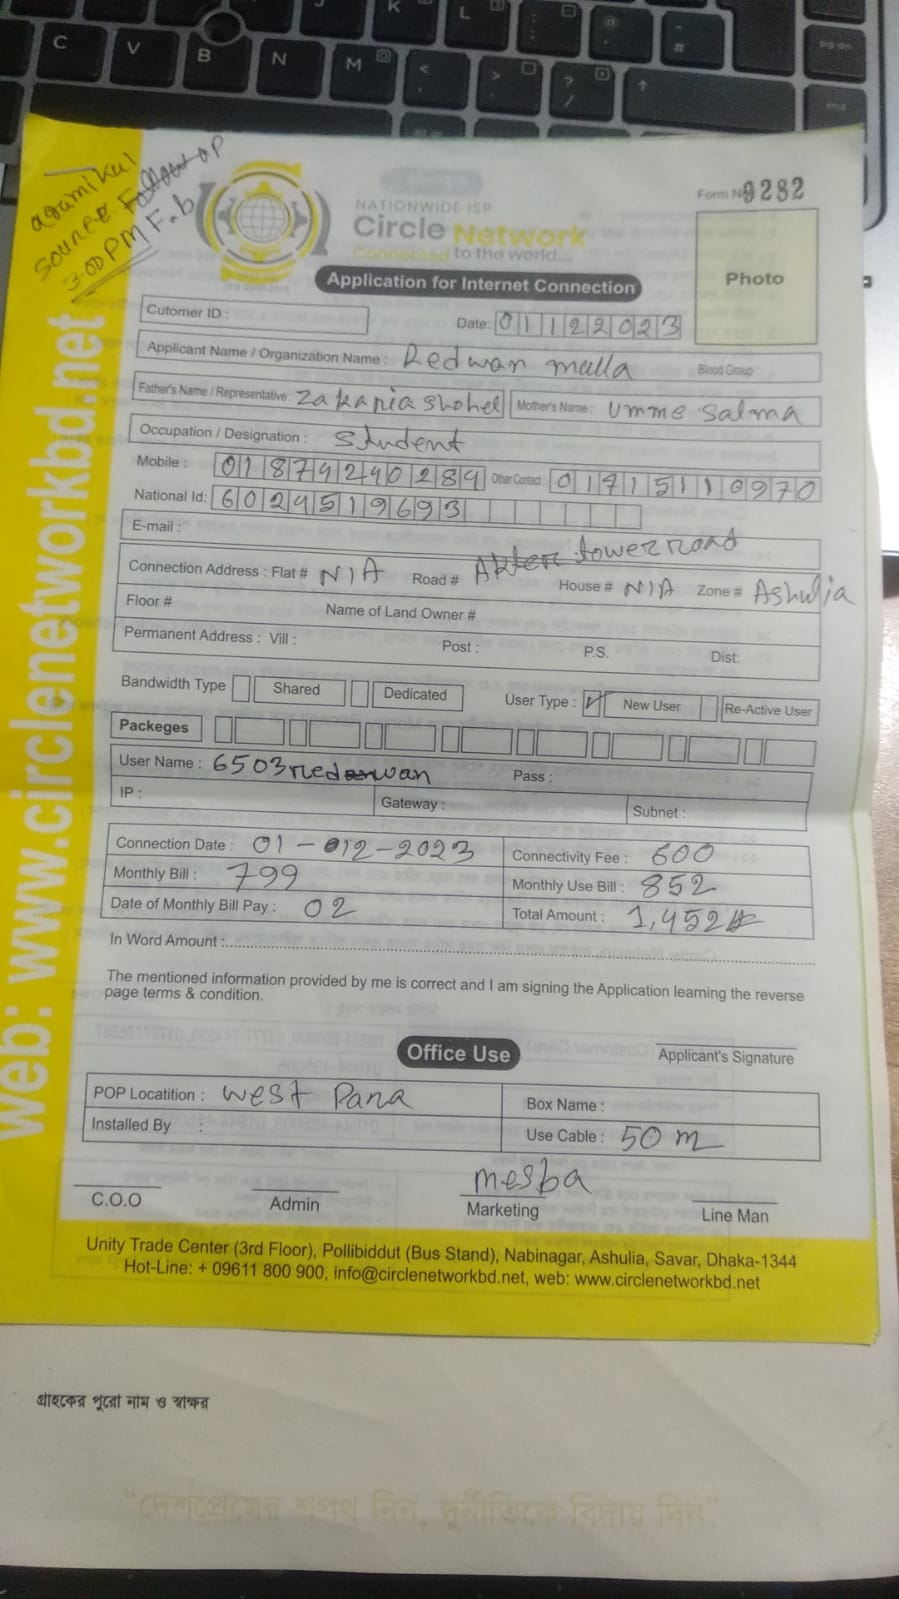 agamikul
source Follow op
3.00 PM F.b
NATIONWIDE ISP
Circle Network
Connected to the world....
ISO 9001:2015
Form No 9282
Photo
Application for Internet Connection
Cutomer ID :
Date: 01122023
Applicant Name / Organization Name : Redwan malla
Blood Group :
Father's Name / Representative : Zakaria Shohel
Mother's Name : Umme Salma
Occupation / Designation : Student
Mobile : 01874240284 Other Contact : 01715110970
National Id: 6024519693
E-mail :
Connection Address : Flat # N/A Road # Akter tower road House # N/A Zone # Ashulia
Floor # Name of Land Owner #
Permanent Address : Vill : Post : P.S. Dist:
Bandwidth Type Shared Dedicated User Type : New User Re-Active User
Packeges
User Name : 6503redwan Pass :
IP : Gateway : Subnet :
Connection Date : 01-012-2023 Connectivity Fee : 600
Monthly Bill : 799 Monthly Use Bill : 852
Date of Monthly Bill Pay : 02 Total Amount : 1,452
In Word Amount :
The mentioned information provided by me is correct and I am signing the Application learning the reverse
page terms & condition.
Office Use
Applicant's Signature
POP Locatition : West Para Box Name :
Installed By : Use Cable : 50 m
mesba
C.O.O Admin Marketing Line Man
Unity Trade Center (3rd Floor), Pollibiddut (Bus Stand), Nabinagar, Ashulia, Savar, Dhaka-1344
Hot-Line: + 09611 800 900, info@circlenetworkbd.net, web: www.circlenetworkbd.net
web: www.circlenetworkbd.net
গ্রাহকের পুরো নাম ও স্বাক্ষর
"দেশপ্রেমের শপথ নিন, দুর্নীতিকে বিদায় দিন"